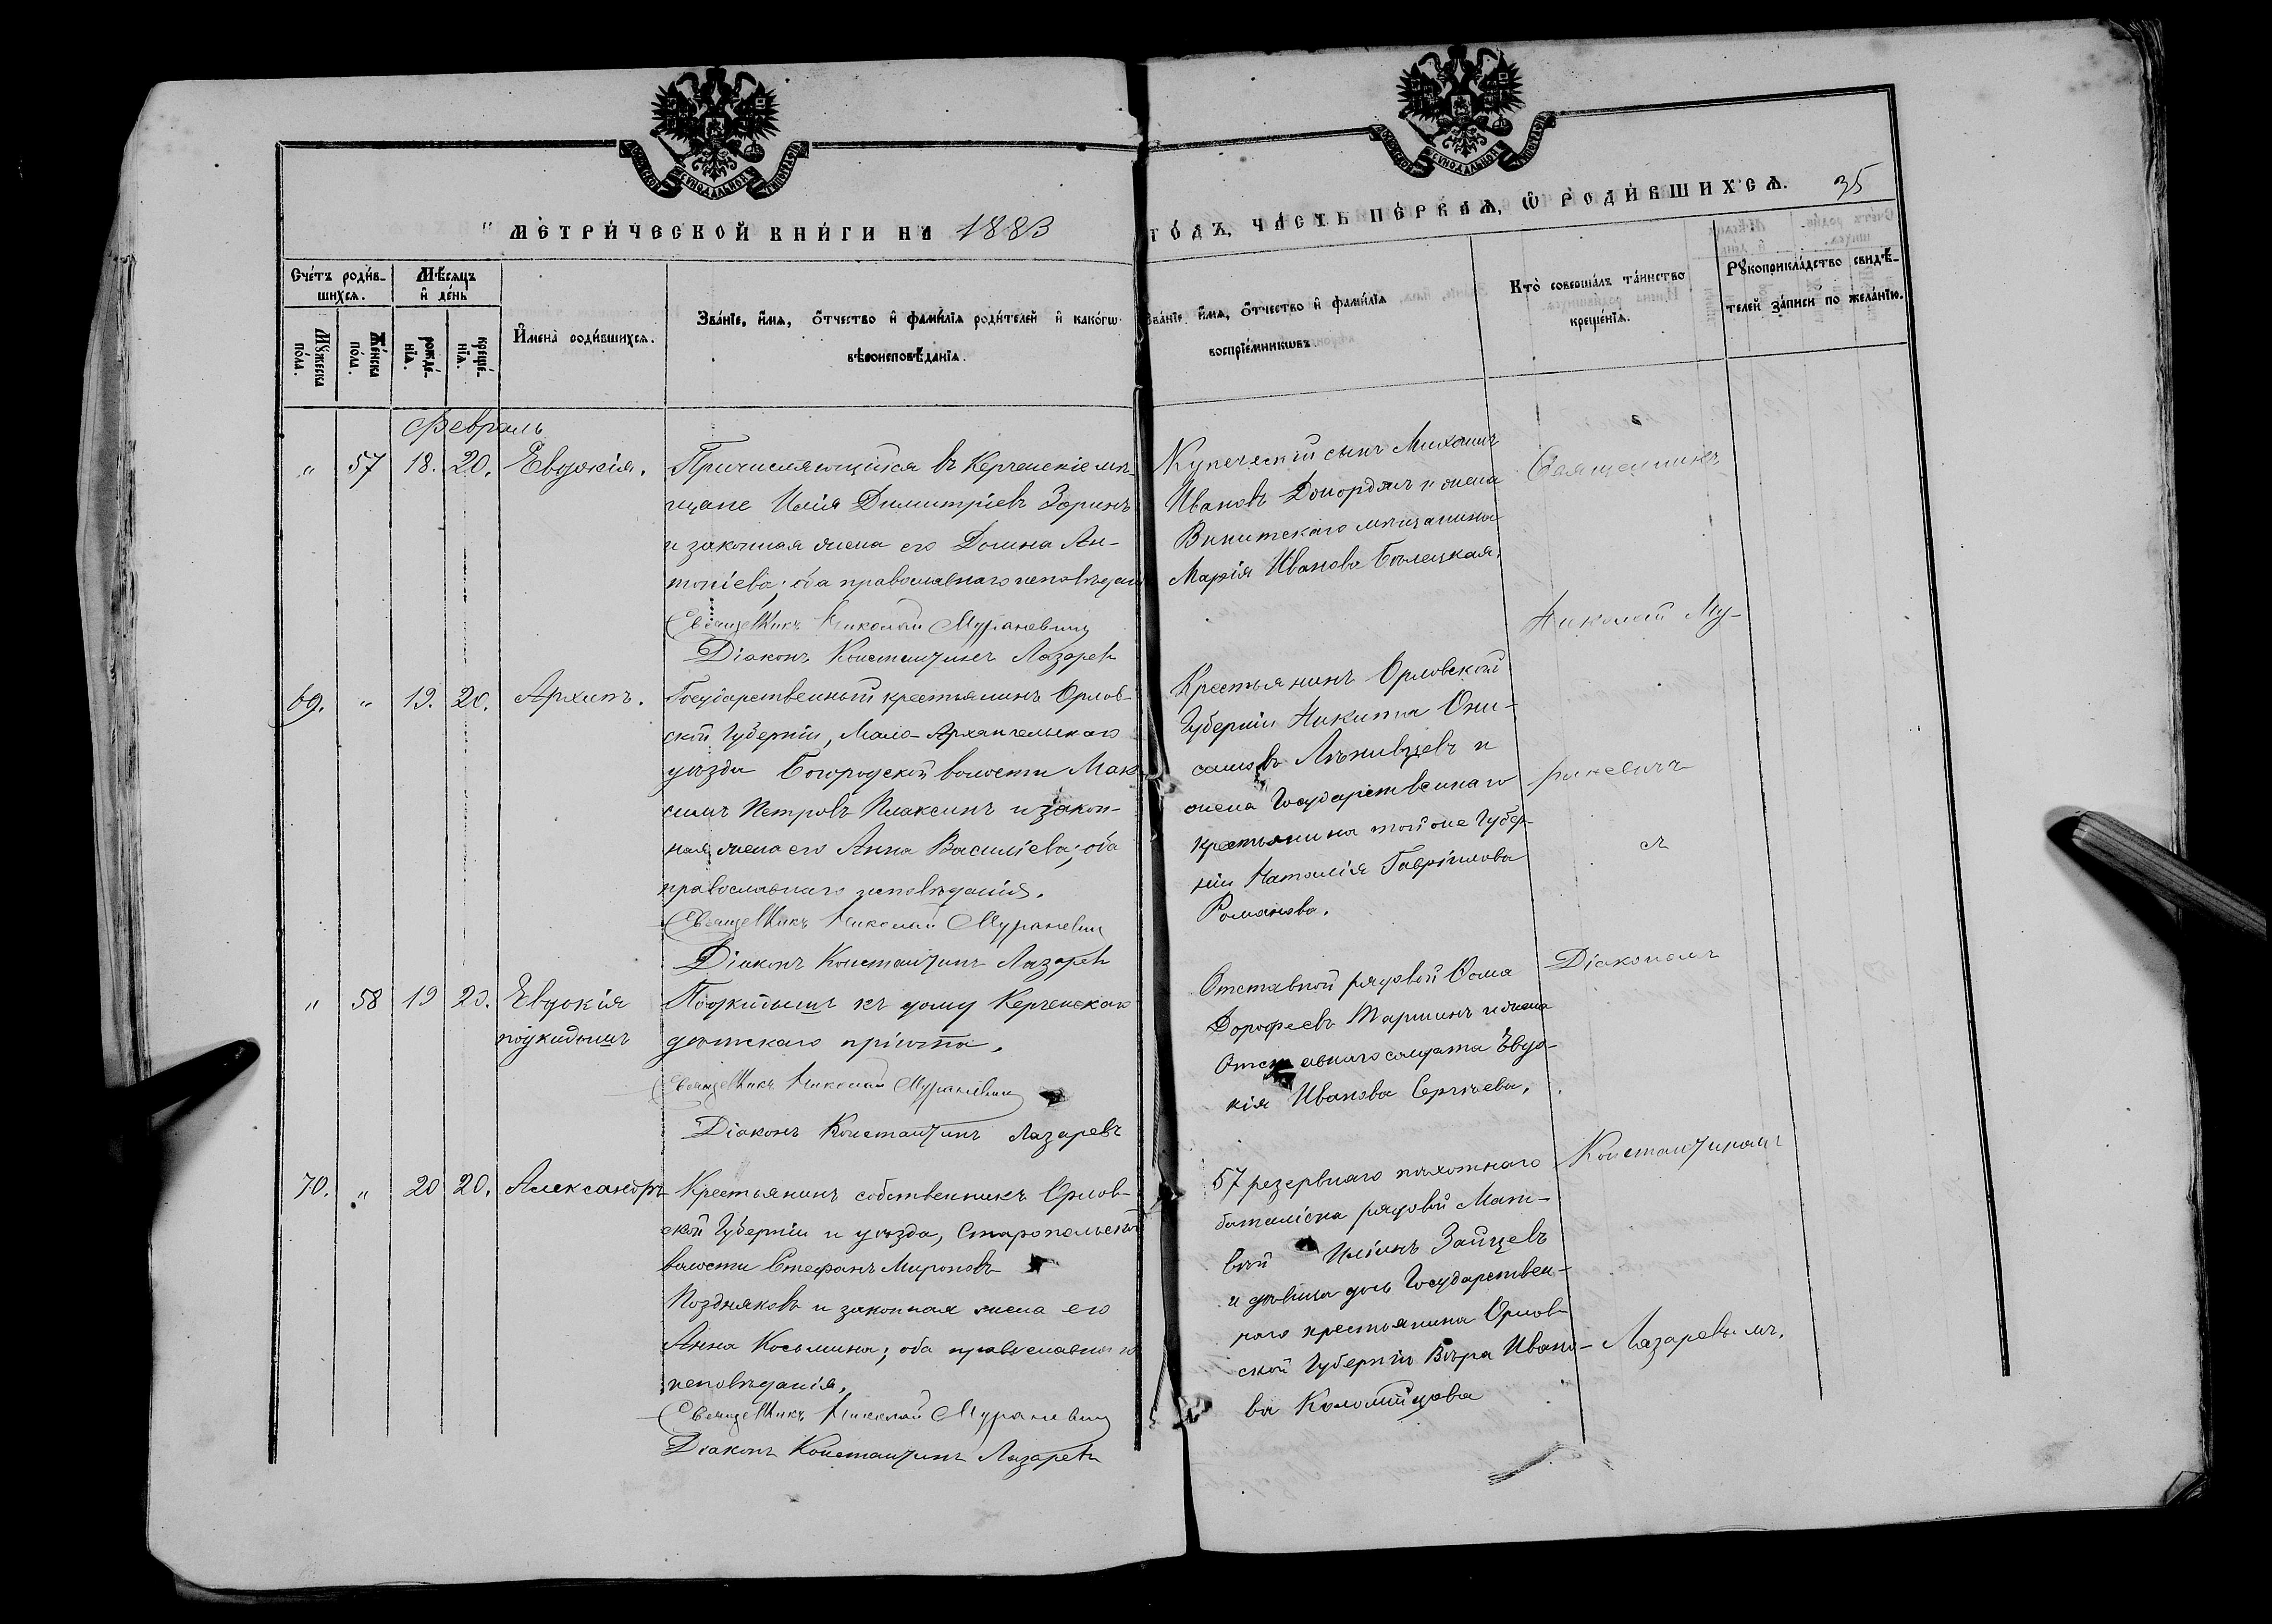 МОСКОВСКОЙ СѴНОДАЛЬНОЙ ТИПОГРАФІИ
МОСКОВСКОЙ СѴНОДАЛЬНОЙ ТИПОГРАФІИ
МЕТРИ́ЧЕСКОЙ КНИ́ГИ НА 1883
ГО́ДЪ, ЧА́СТЬ ПЕ́РВАѦ, Ѡ҆ РОДИ́ВШИХСѦ. 35
Сче́тъ роди́в-
шихсѧ.
Мѣ́сѧцъ
и҆ де́нь
Мꙋ́жеска
по́ла.
Же́нска
по́ла.
рожде́-
нїѧ.
креще́-
нїѧ.
И҆мена̀ роди́вшихсѧ.
Зва́нїе, и҆́мѧ, ѻ҆́тчество и҆ фами́лїѧ роди́телей и҆ како́гѡ
вѣроисповѣ́данїѧ.
Зва́нїе, и҆́мѧ, ѻ҆́тчество и҆ фами́лїѧ
воспрїе́мникѡвъ.
Кто̀ соверша́лъ та́инство
креще́нїѧ.
Рꙋкоприкла́дство свидѣ́-
телей за́писи по жела́нїю.
Февраль
" 57 18. 20. Евдокія.
Причисляющійся въ Керченскіе мѣ-
щане Илія Димитріевъ Заринъ
и законная жена его Домна Ан-
тоніева; оба православнаго исповѣдан
Священникъ Николай Мураневичъ
Діаконъ Константинъ Лазаревъ
Купеческій сынъ Михаилъ
Ивановъ Домордянъ и жена
Винитскаго мѣщанина
Марія Иванова Бѣлецкая.
69. " 19. 20. Архипъ.
Государственный крестьянинъ Орлов-
ской Губерніи, Мало-Архангельскаго
уѣзда Богородской волости Мак-
симъ Петровъ Плаксинъ и закон-
ная жена его Анна Василіева; оба
православнаго исповѣданія.
Священникъ Николай Мураневичъ
Діаконъ Константинъ Лазаревъ
Крестьянинъ Орловской
Губерніи Никита Они-
симовъ Лѣнивцевъ и
жена Государственнаго
крестьянина той же Губер-
ніи Наталія Гавріилова
Романова.
" 58 19 20. Евдокія
подкидышъ
Подкидышъ къ дому Керченскаго
дѣтскаго пріюта.
Священникъ Николай Мураневичъ
Діаконъ Константинъ Лазаревъ
Отставной рядовой Ѳома
Дорофеевъ Таршинъ и жена
Отставнаго солдата Евдо-
кія Иванова Сергѣева.
70. " 20 20. Александръ
Крестьянинъ собственникъ Орлов-
ской Губерніи и уѣзда, Старопольской
волости Стефанъ Мироновъ
Поздняковъ и законная жена его
Анна Косьмина; оба православнаго
исповѣданія.
Священникъ Николай Мураневичъ
Діаконъ Константинъ Лазаревъ
57 резервнаго пѣхотнаго
баталіона рядовой Мат-
вѣй Иліинъ Зайцевъ
и дѣвица дочь Государствен-
наго крестьянина Орлов-
ской Губерніи Вѣра Ивано-
ва Коломійцова
Священникъ
Николай Му-
раневичъ
съ
Діакономъ
Константиномъ
Лазаревымъ.